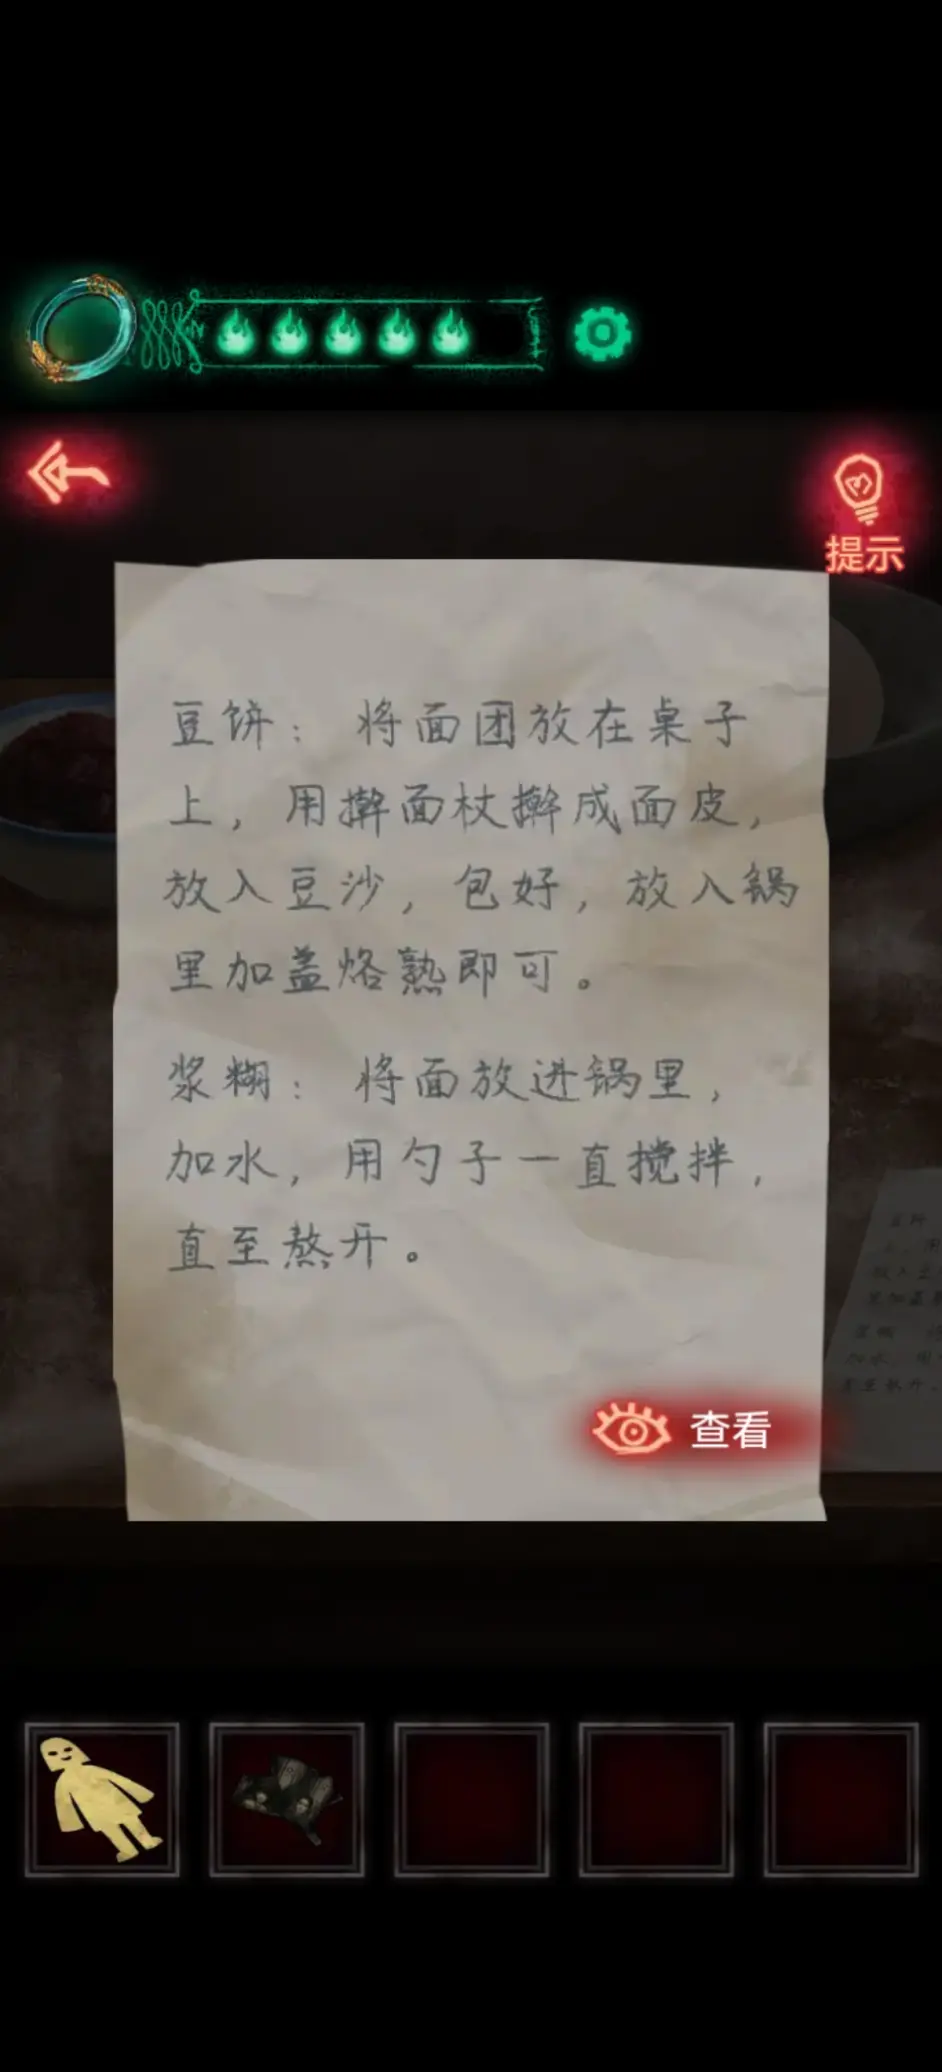 提示
豆饼： 将面团放在桌子
上，用擀面杖擀成面皮，
放入豆沙，包好，放入锅
里加盖烙熟即可。
浆糊： 将面放进锅里，
加水，用勺子一直搅拌，
直至熬开。
查看